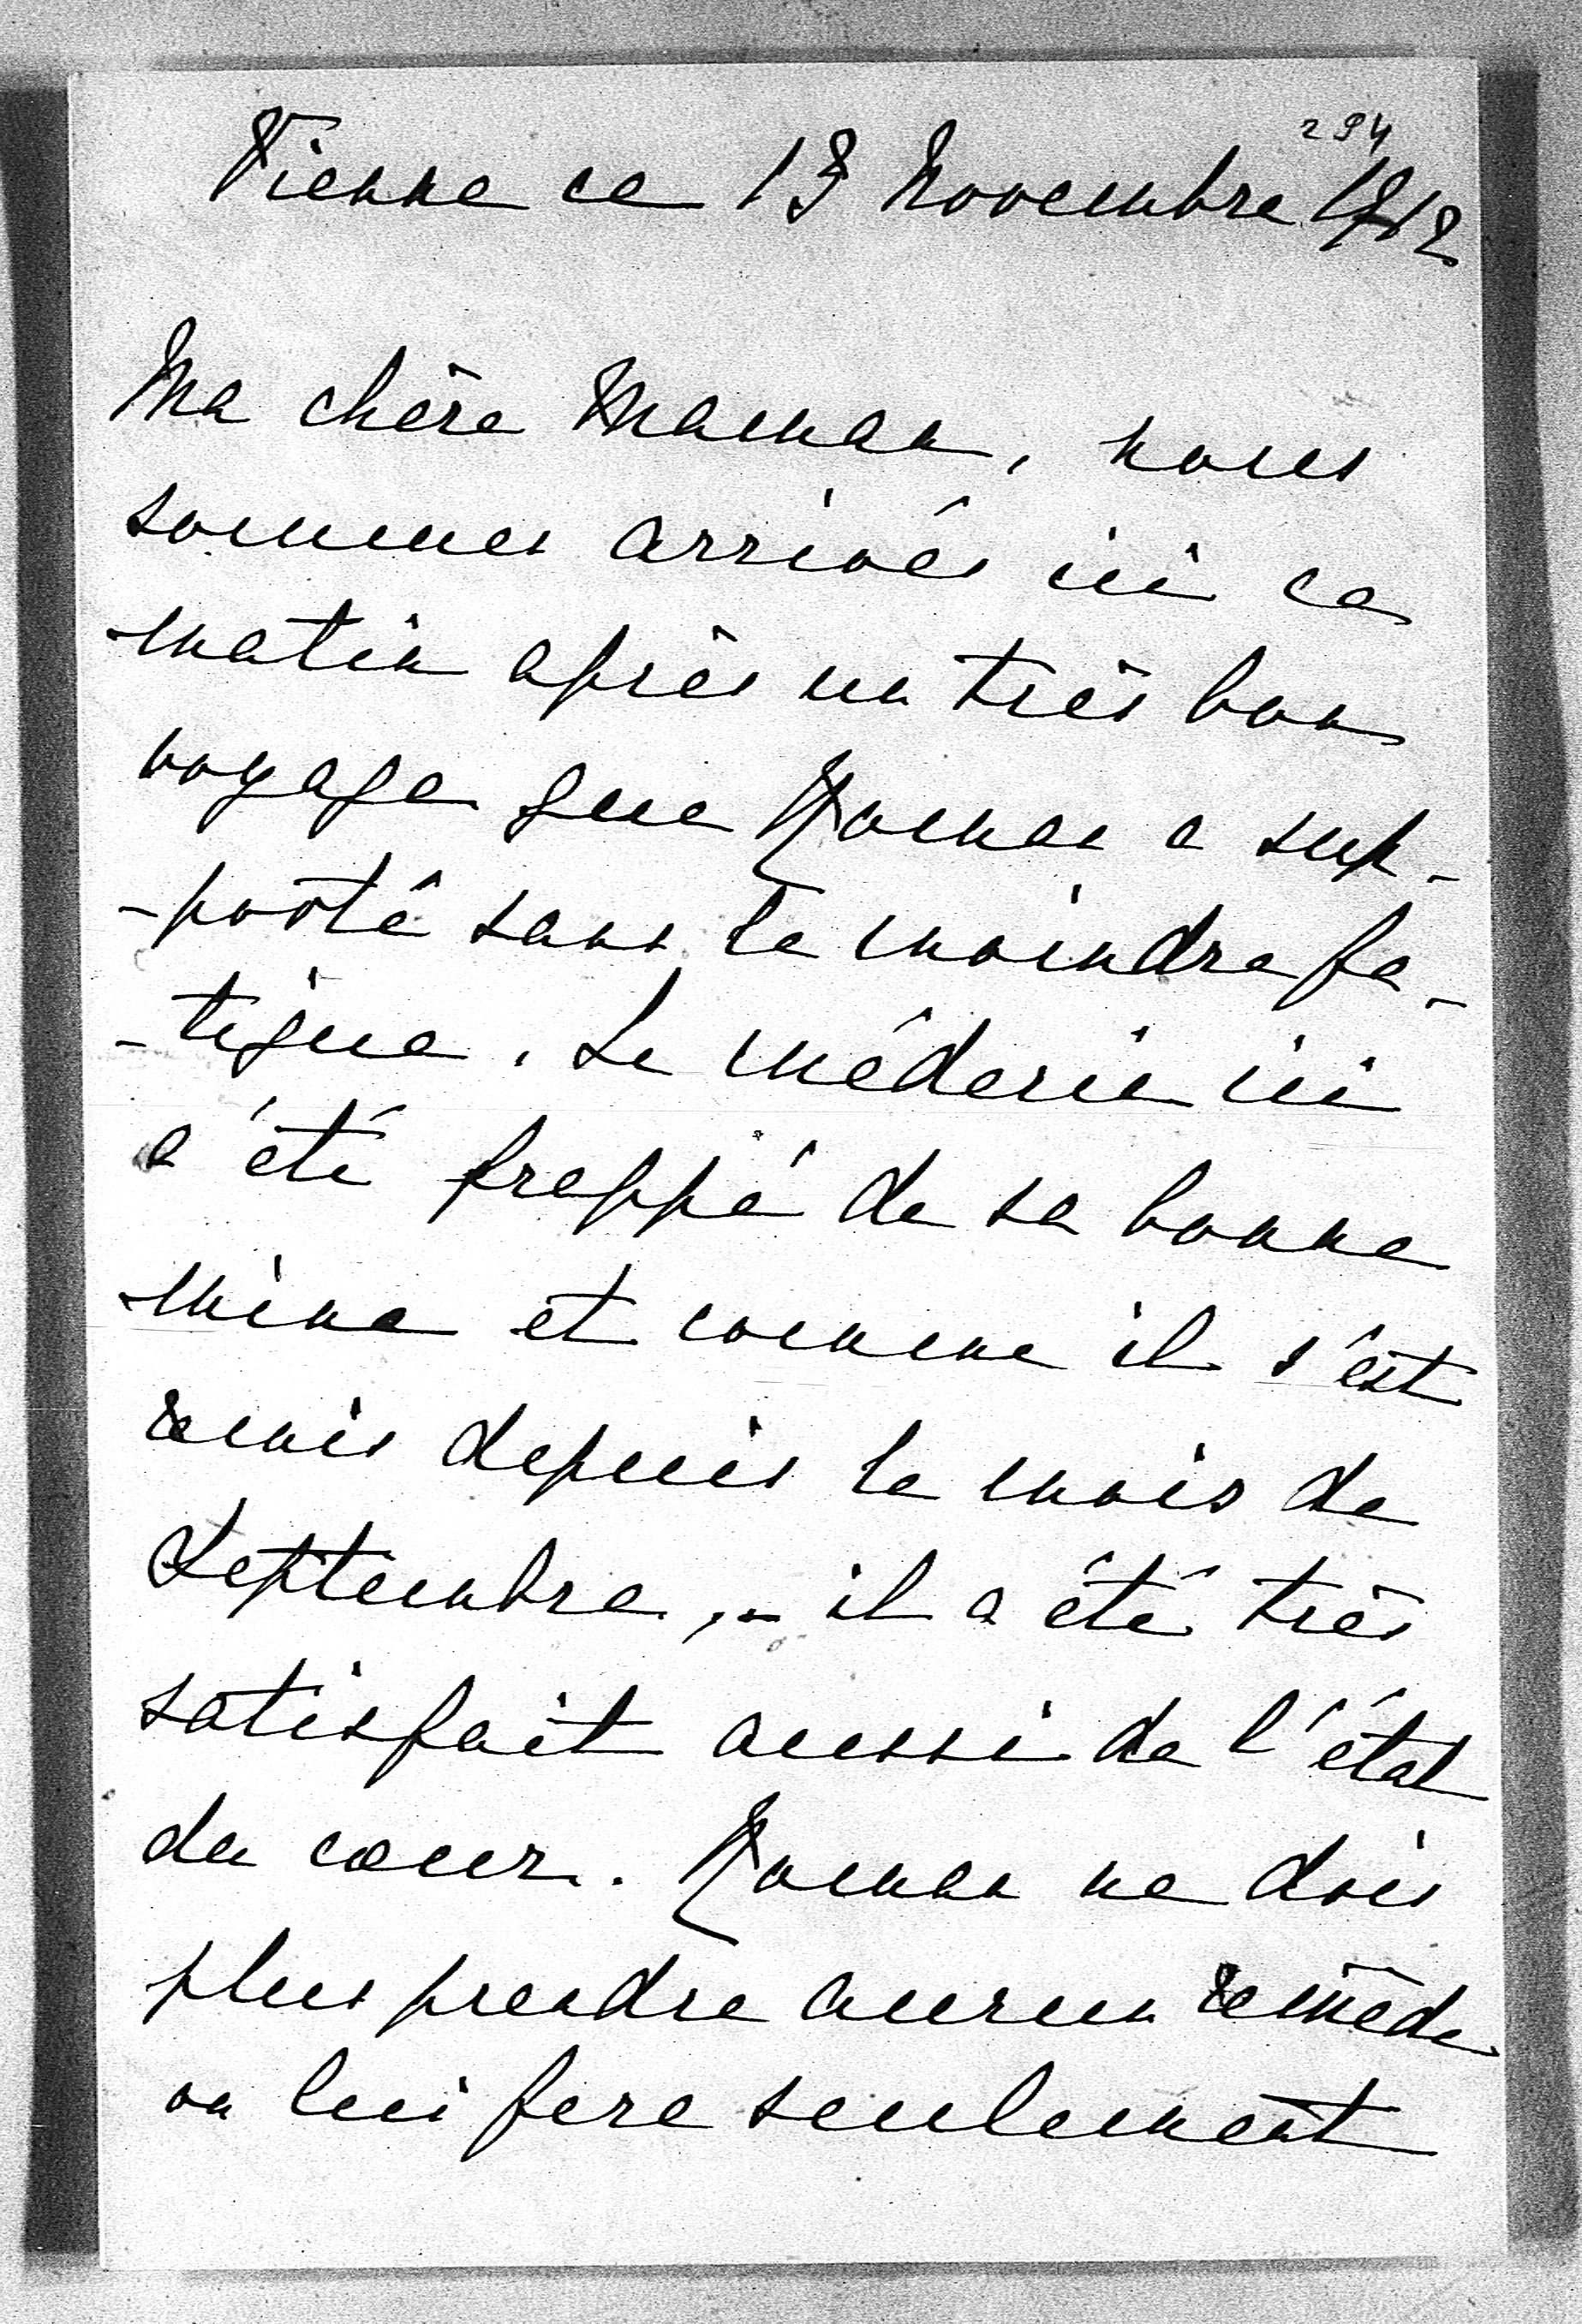 294
Vienne ce 13 Novembre 1912
Ma chère Maman, nous
sommes arrivés ici ce
matin après un très bon
voyage que Roman a sup-
-porté sans la moindre fa-
-tigue. Le médecin ici
a été frappé de sa bonne
mine et comme il s'est
remis depuis le mois de
Septembre, - il a été très
satisfait aussi de l'état
du cœur. Roman ne dois
plus prendre aucun remède
on lui fera seulement